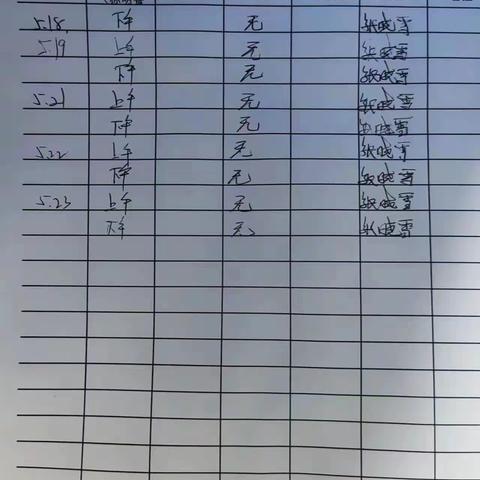 5.18. 下午 无 纸晓雪
5.19 上午 无 纸晓雪
下午 无 纸晓雪
5.21 上午 无 纸晓雪
下午 无 纸晓雪
5.22 上午 无 纸晓雪
下午 无 纸晓雪
5.23 上午 无 纸晓雪
下午 无 纸晓雪